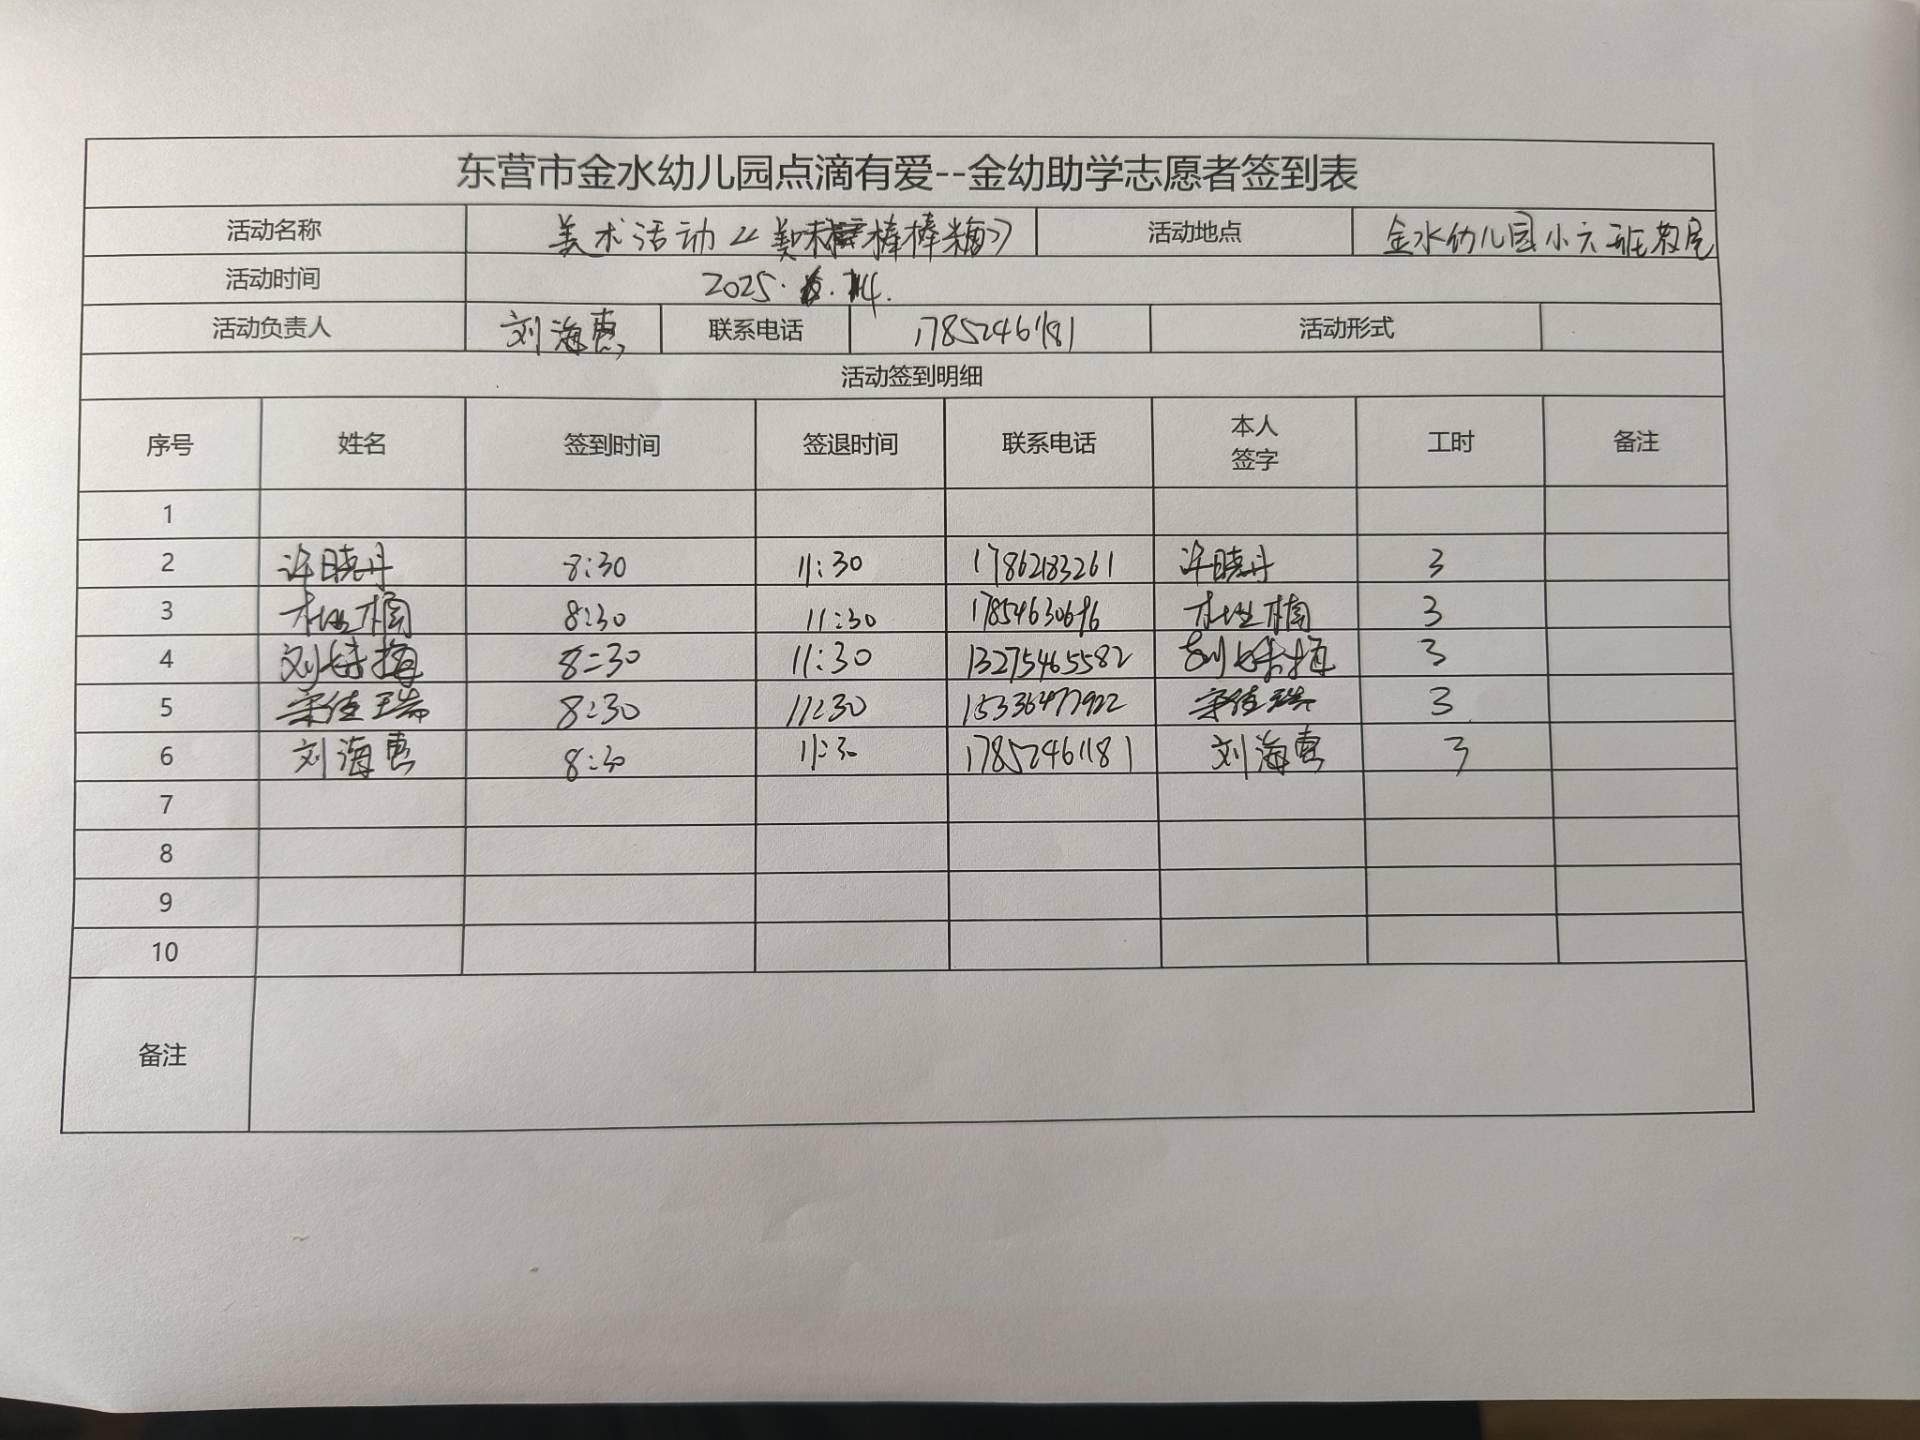 东营市金水幼儿园点滴有爱--金幼助学志愿者签到表
活动名称 美术活动《美味棒棒糖》 活动地点 金水幼儿园小六班教室
活动时间 2025. 6. 14.
活动负责人 刘海惠 联系电话 活动形式
活动签到明细
序号 姓名 签到时间 签退时间 联系电话 本人签字 工时 备注
1
2 许晓丹 8:30 11:30 17862183261 许晓丹 3
3 8:30 11:30 3
4 8:30 11:30 13275465582 3
5 宋佳瑞 8:30 11:30 15336477922 宋佳瑞 3
6 刘海惠 8:30 11:30 17852461181 刘海惠 3
7
8
9
10
备注